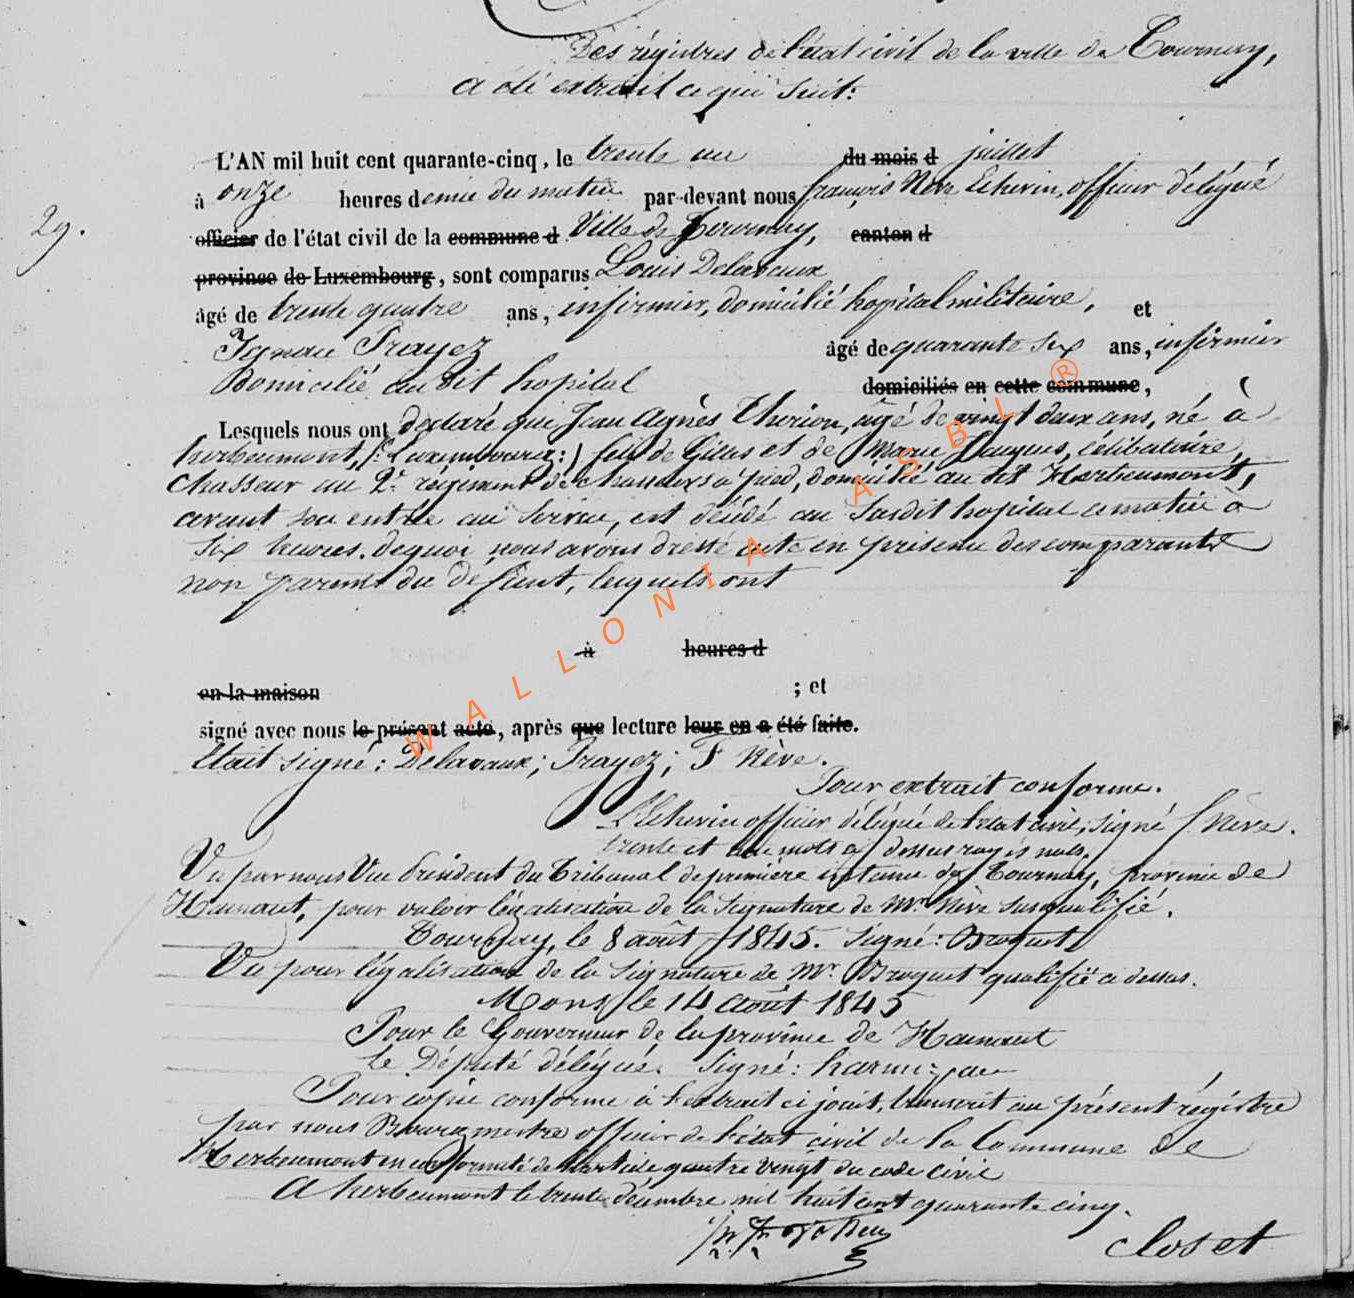 Des régistres de l'état civil de la ville de Tournay,
a été extrait ce qui suit:
L'AN mil huit cent quarante-cinq, le trente un du mois d juillet
à onze heures demie du matin par-devant nous françois Nève Echevin, officier délégué
29.
officier de l'état civil de la commune d Ville de Tournay, canton d
province de Luxembourg, sont comparus Louis Delavaux
agé de trente quatre ans, infirmier, domicilié hopital militaire, et
Ignace Prayez âgé de quarante six ans, infirmier
Domicilié au dit hopital domiciliés en cette commune,
Lesquels nous ont déclaré que Jean Agnès Therion, âgé de vingt deux ans, né à
herbeumont, (: Luxembourg :) fils de Gilles et de Marie Jacques, célibataire,
Chasseur au 2e régiment de chasseurs à pied, domicilié au dit Herbeumont,
avant son entrée au service, est décédé au susdit hopital ce matin à
six heures. de quoi nous avons dressé acte en présence des comparants
non parents du défunt, lesquels ont
à heures d
en la maison ; et
signé avec nous le présent acte, après que lecture leur en a été faite.
Etait signé: Delavaux; Prayez; F Nève.
Pour extrait conforme.
L'Echevin officier délégué de l'état civil, signé f. Nève.
trente et un mots ci dessus rayés nuls.
Vu par nous Vice Président du Tribunal de première instance de Tournay, province de
Hainaut, pour valoir légalisation de la signature de Mr Nève susqualifié.
Tournay, le 8 août 1845. signé: Broquet
Vu pour légalisation de la signature de Mr. Broquet qualifié ci dessus.
Mons le 14 août 1845
Pour le Gouverneur de la province de Hainaut
le Député délégué. Signé:
Pour copie conforme à l'extrait ci joint, transcrit au présent régistre
par nous Bourgmestre officier de l'état civil de la Commune de
Herbeumont en conformité de l'article quatre vingt du code civil
A herbeumont le trente décembre mil huit cent quarante cinq.
closet
WALLONIA ASBL ®